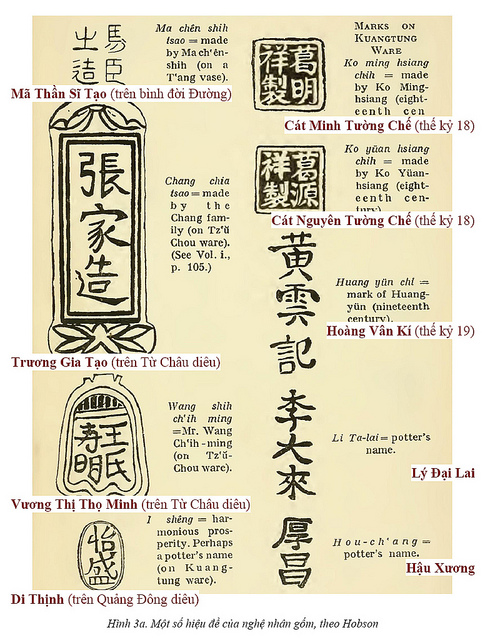 馬臣
士造
Ma chên shih
tsao = made
by Ma ch'ên-
shih (on a
T'ang vase).
Mã Thần Sĩ Tạo (trên bình đời Đường)
張家造
Chang chia
tsao = made
by the
Chang fam-
ily (on Tz'ŭ
Chou ware).
(See Vol. i.,
p. 105.)
Trương Gia Tạo (trên Từ Châu diêu)
王氏
寿明
Wang shih
ch'ih ming
=Mr. Wang
Ch'ih-ming
(on Tz'ŭ-
Chou ware).
Vương Thị Thọ Minh (trên Từ Châu diêu)
怡盛
I shêng = har-
monious pros-
perity. Perhaps
a potter's name
(on Kuang-
tung ware).
Di Thịnh (trên Quảng Đông diêu)
MARKS ON
KUANGTUNG
WARE
葛明
祥製
Ko ming hsiang
chih = made
by Ko Ming-
hsiang (eight-
eenth cen
Cát Minh Tường Chế (thế kỷ 18)
葛源
祥製
Ko yüan hsiang
chih = made
by Ko Yüan-
hsiang (eight-
eenth cen-
tury).
Cát Nguyên Tường Chế (thế kỷ 18)
黃雲記
Huang yün chi =
mark of Huang-
yün (nineteenth
century).
Hoàng Vân Kí (thế kỷ 19)
李大來
Li Ta-lai= potter's
name.
Lý Đại Lai
厚昌
Hou-ch'ang =
potter's name.
Hậu Xương
Hình 3a. Một số hiệu đề của nghệ nhân gốm, theo Hobson